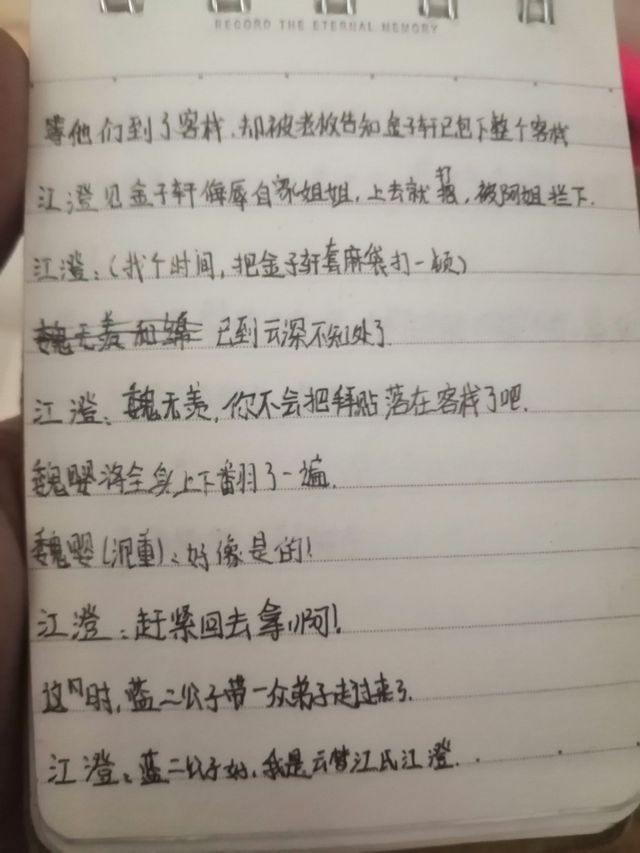 RECORD THE ETERNAL MEMORY
等他们到了客栈，却被老板告知金子轩已包下整个客栈
江澄见金子轩侮辱自家姐姐，上去就打，被阿姐拦下.
江澄：（找个时间，把金子轩套麻袋打一顿）
魏无羡和绵 已到云深不知处了
江澄：魏无羡，你不会把拜贴落在客栈了吧.
魏婴将全身上下翻了一遍.
魏婴（沉重）：好像是的！
江澄：赶紧回去拿啊！
这时，蓝二公子带一众弟子走过来了.
江澄：蓝二公子好，我是云梦江氏江澄.